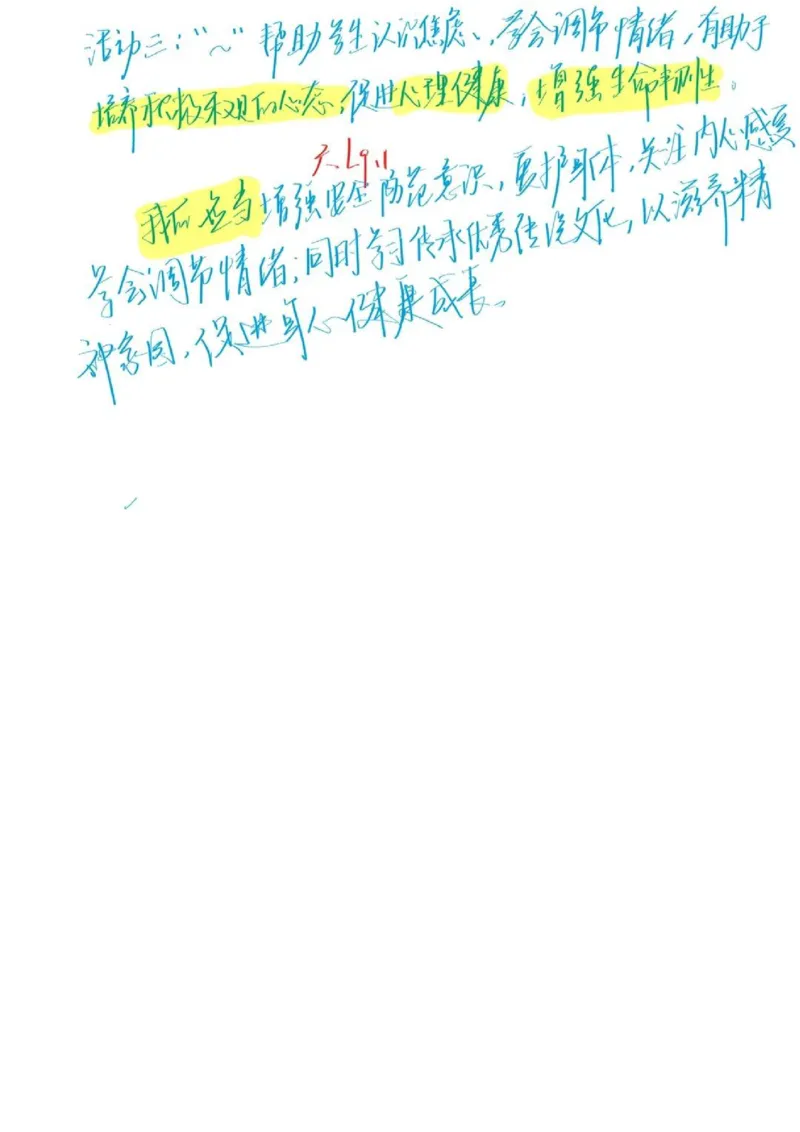 活动三："～"帮助学生认识焦虑、学会调节情绪，有助于
培养积极乐观的心态，促进心理健康，增强生命韧性。
我们应当增强安全防范意识，爱护身体，关注内心感受
学会调节情绪；同时学习传承优秀传统文化，以滋养精
神家园，促进身心健康成长。